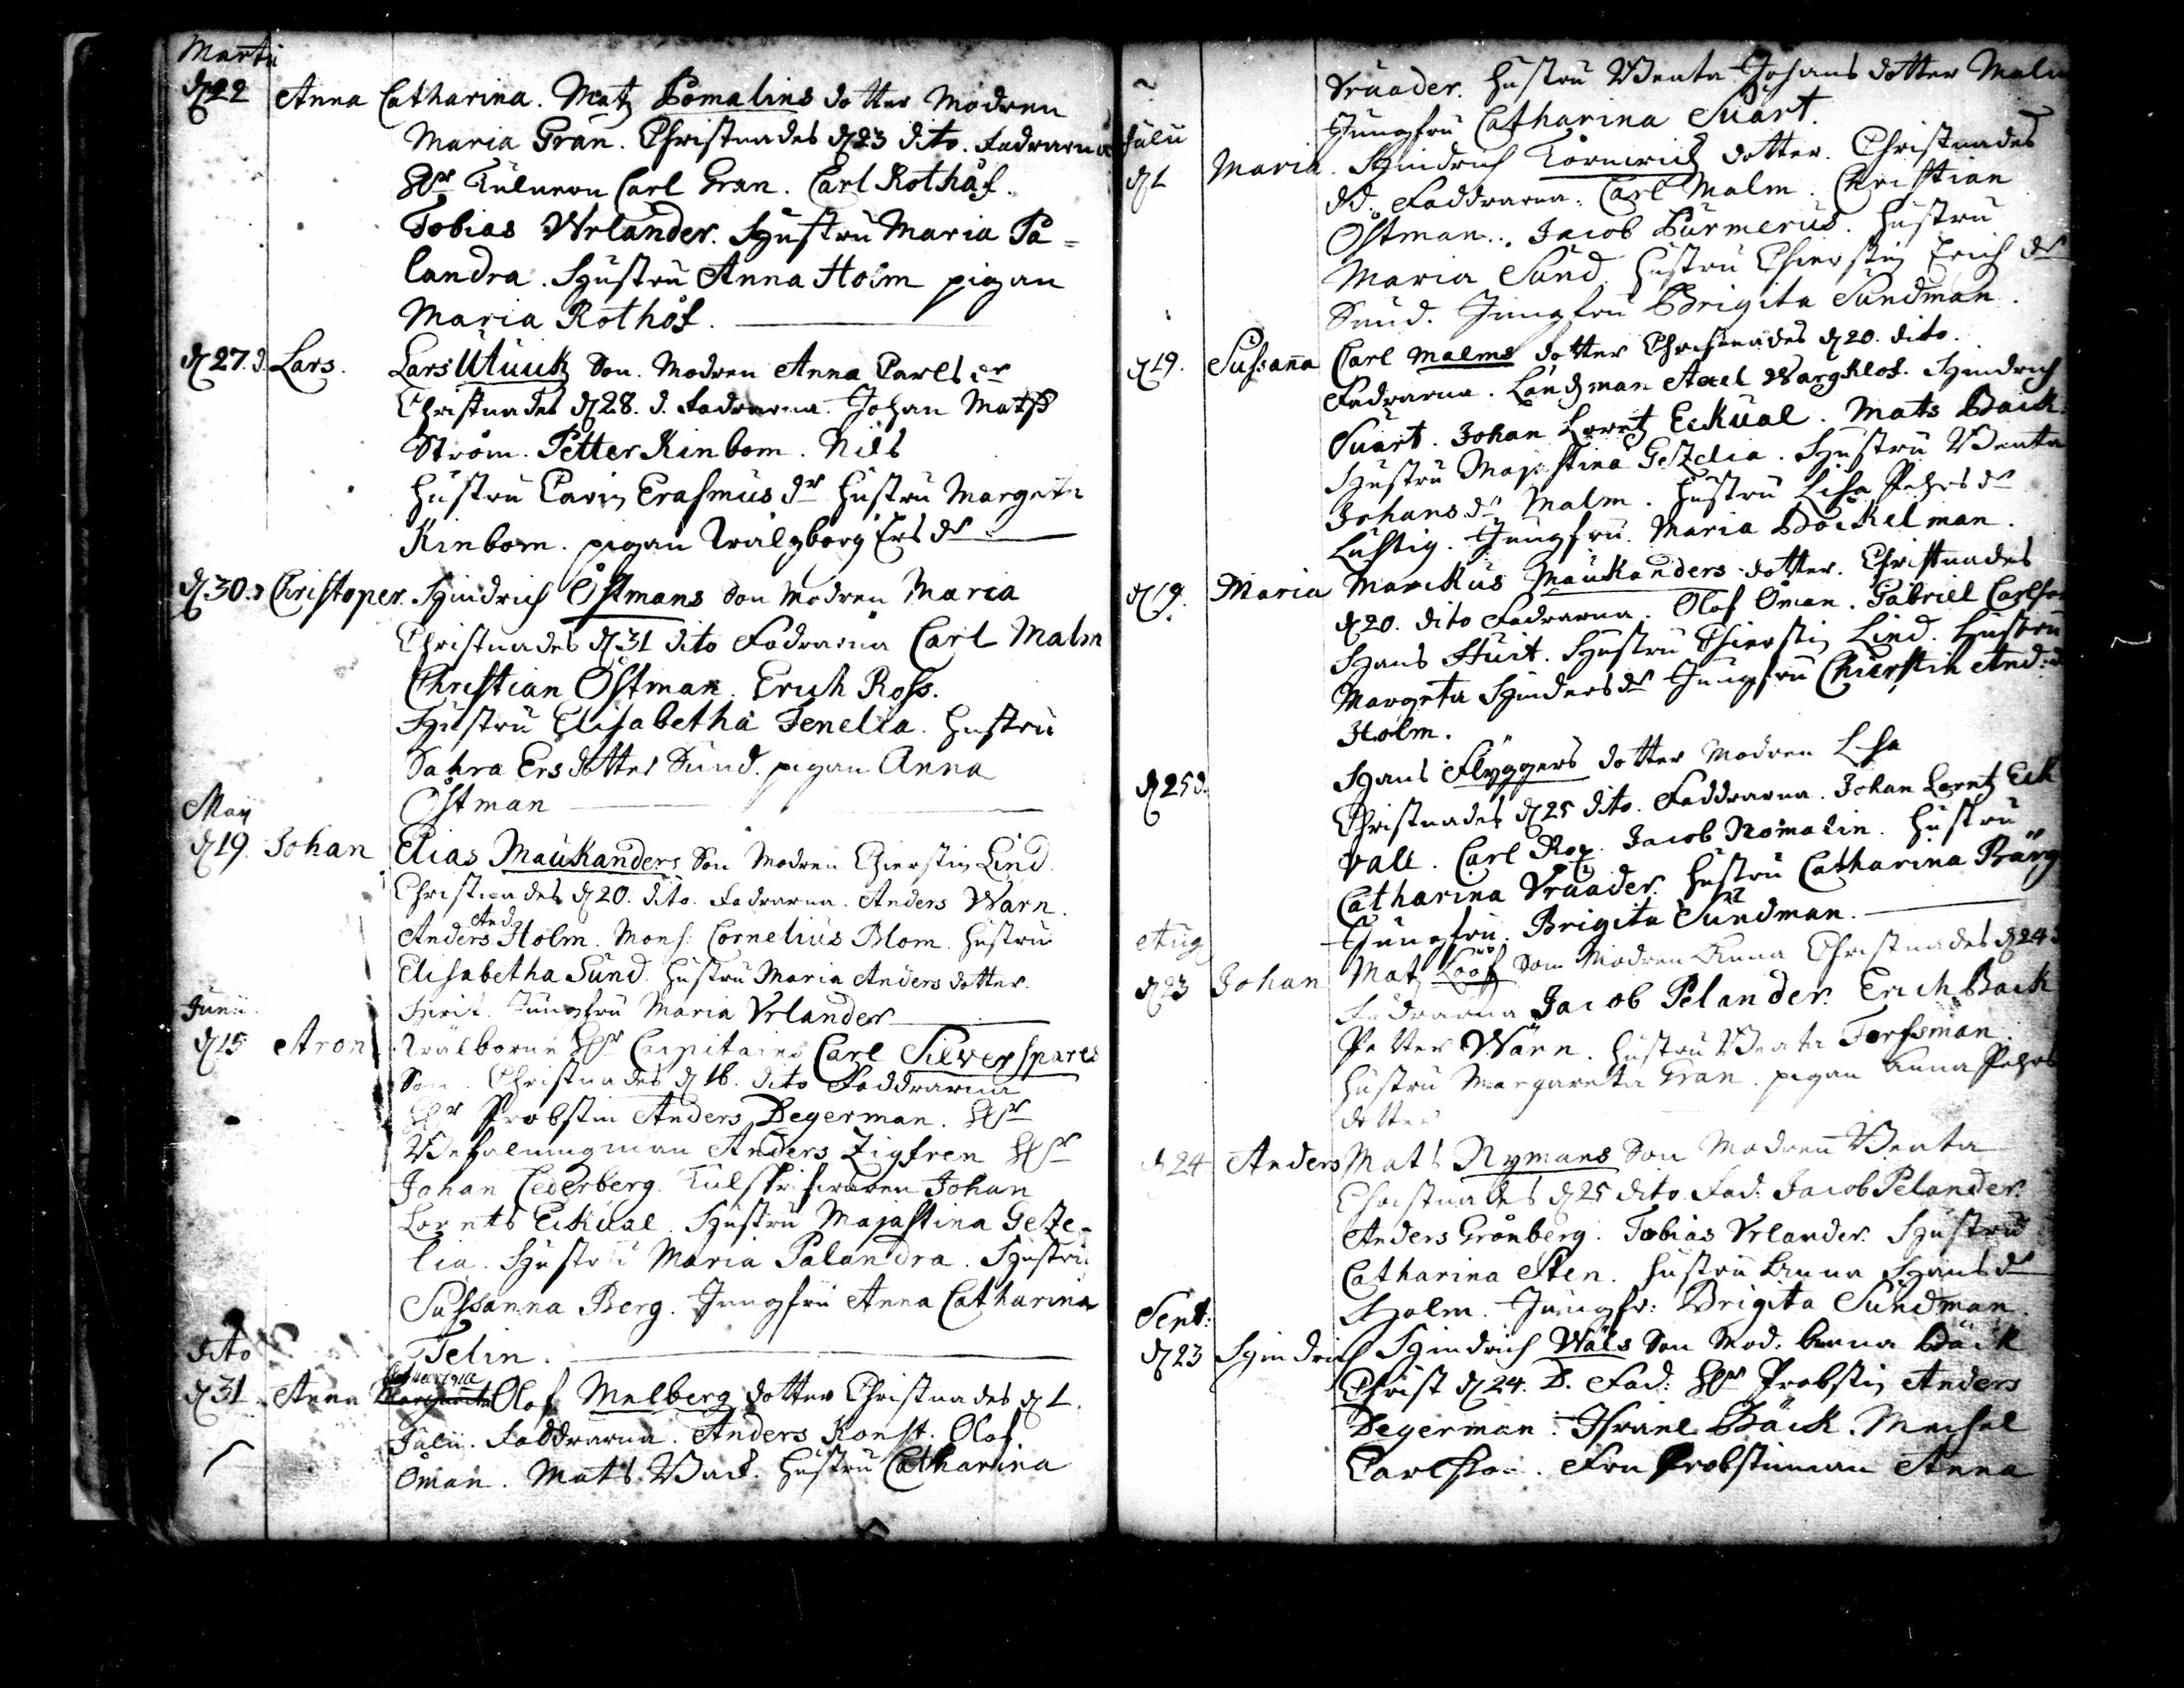 Martii
d. 22 Anna Catharina. Matz Pomalins dotter Modren
Maria Gran. Christnades d. 23 dito. Fadrarna
Hr Tulneren Carl Gran. Carl Rothöf.
Tobias Urlander. Hustru Maria Pa-
landra. Hustru Anna Holm pigan
Maria Rothöf.
d. 27. d. Lars. Lars Son. Modren Anna Carls dr
Christnades d. 28. d. Fadrarna. Johan Mats
Ström. Petter Kinbom. Nils
Hustru Carin Erasmus dr Hustru Margeta
Kinbom. pigan Walgborg Ers dr
d. 30. Christoper. Hindrich Östmans Son Modren Maria
Christnades d. 31 dito Fadrarna Carl Malm
Christian Östman. Erich Ross.
Hustru Elisabetha Fenelia. Hustru
Sahra Ers dotter Sund. pigan Anna
Östman
May
d. 19. Johan Elias Maukanders Son Modren Chierstin Lind
Christnades d. 20. dito. Fadrarna. Anders Wärn.
Anders And. Holm. Mons: Cornelius Blom. Hustru
Elisabetha Sund. Hustru Maria Anders dotter.
Junii
Jungfru Maria Urlander
d. 15 Aron Wälborne Hr Capitains Carl Silfversparts
Son. Christnades d. 16. dito Faddrarna
Hr Probstin Anders Degerman. Hr
Befalningman Anders Zigfren Hr
Johan Cederberg. Tulskrifwaren Johan
Lorents Eckual. Hustru Majastina Geze-
lia. Hustru Maria Palandra. Hustru
Sussanna Berg. Jungfru Anna Catharina
Telin.
dito
d. 31 Anna Catharina Olof Melberg dotter Christnades d. 1.
Julii. Faddrarna. Anders Konst. Olof
Öman. Mats Back. Hustru Catharina
Uruader. Hustru Beata Johans dotter Malm
Jungfru Catharina Suart.
Julii
d. 1 Maria. Hindrich dotter. Christnades
dd. Faddrarna. Carl Malm. Christian
Östman. Jacob Purmerus. Hustru
Maria Sund. Hustru Chierstin Erich dr
Sund. Jungfru Brigita Sundman.
d. 19. Sussanna Carl Malms dotter Christnades d. 20. dito.
Fadrarna. Länsman Axel Wargklof. Hindrich
Suart. Johan Lorntz Eckual. Mats Back.
Hustru Majastina Gezelia. Hustru Beata
Johans dr Malm. Hustru Lisa Pehrs dr
Lustig. Jungfru Maria Böckelman.
d. 19. Maria Marckus Maukanders dotter. Christnades
d. 20. dito Fadrarna. Olof Öman. Gabriel Carlson
Hans Huit. Hustru Chierstin Lind. Hustru
Margeta Hinders dr Jungfru Chierstin And: d
Holm.
d. 25 d. Hans Flyggers dotter Modren Lisa
Christnades d. 25 dito. Faddrarna. Johan Lorntz Eck
vall. Carl Ros. Jacob Nomalin. Hustru
Catharina Uruader. Hustru Catharina Barg
Jungfru. Brigita Sundman.
Aug
d. 23 Johan Matz Lööf Son Modren Anna Christnades d. 24
Fadrarna Jacob Pelander. Erich Back
Petter Wärn. Hustru Beata Forssman
Hustru Margareta Gran. pigan Anna Pehrs
dotter
d. 24 Anders Mats Nymans Son Modren Beata
Christnades d. 25 dito. Fad: Jacob Pelander.
Anders Grönberg. Tobias Urlander. Hustru
Catharina Sten. Hustru Anna Hans dr
Holm. Jungfr: Brigita Sundman.
Sept:
d. 23 Hindrich Hindrich Wäls Son Mod: Anna Bäck
Christ d. 24. D. Fad: Hr Probstin Anders
Degerman. Israel Bäck. Mechel
Carlson. Fru Probstinnan Anna